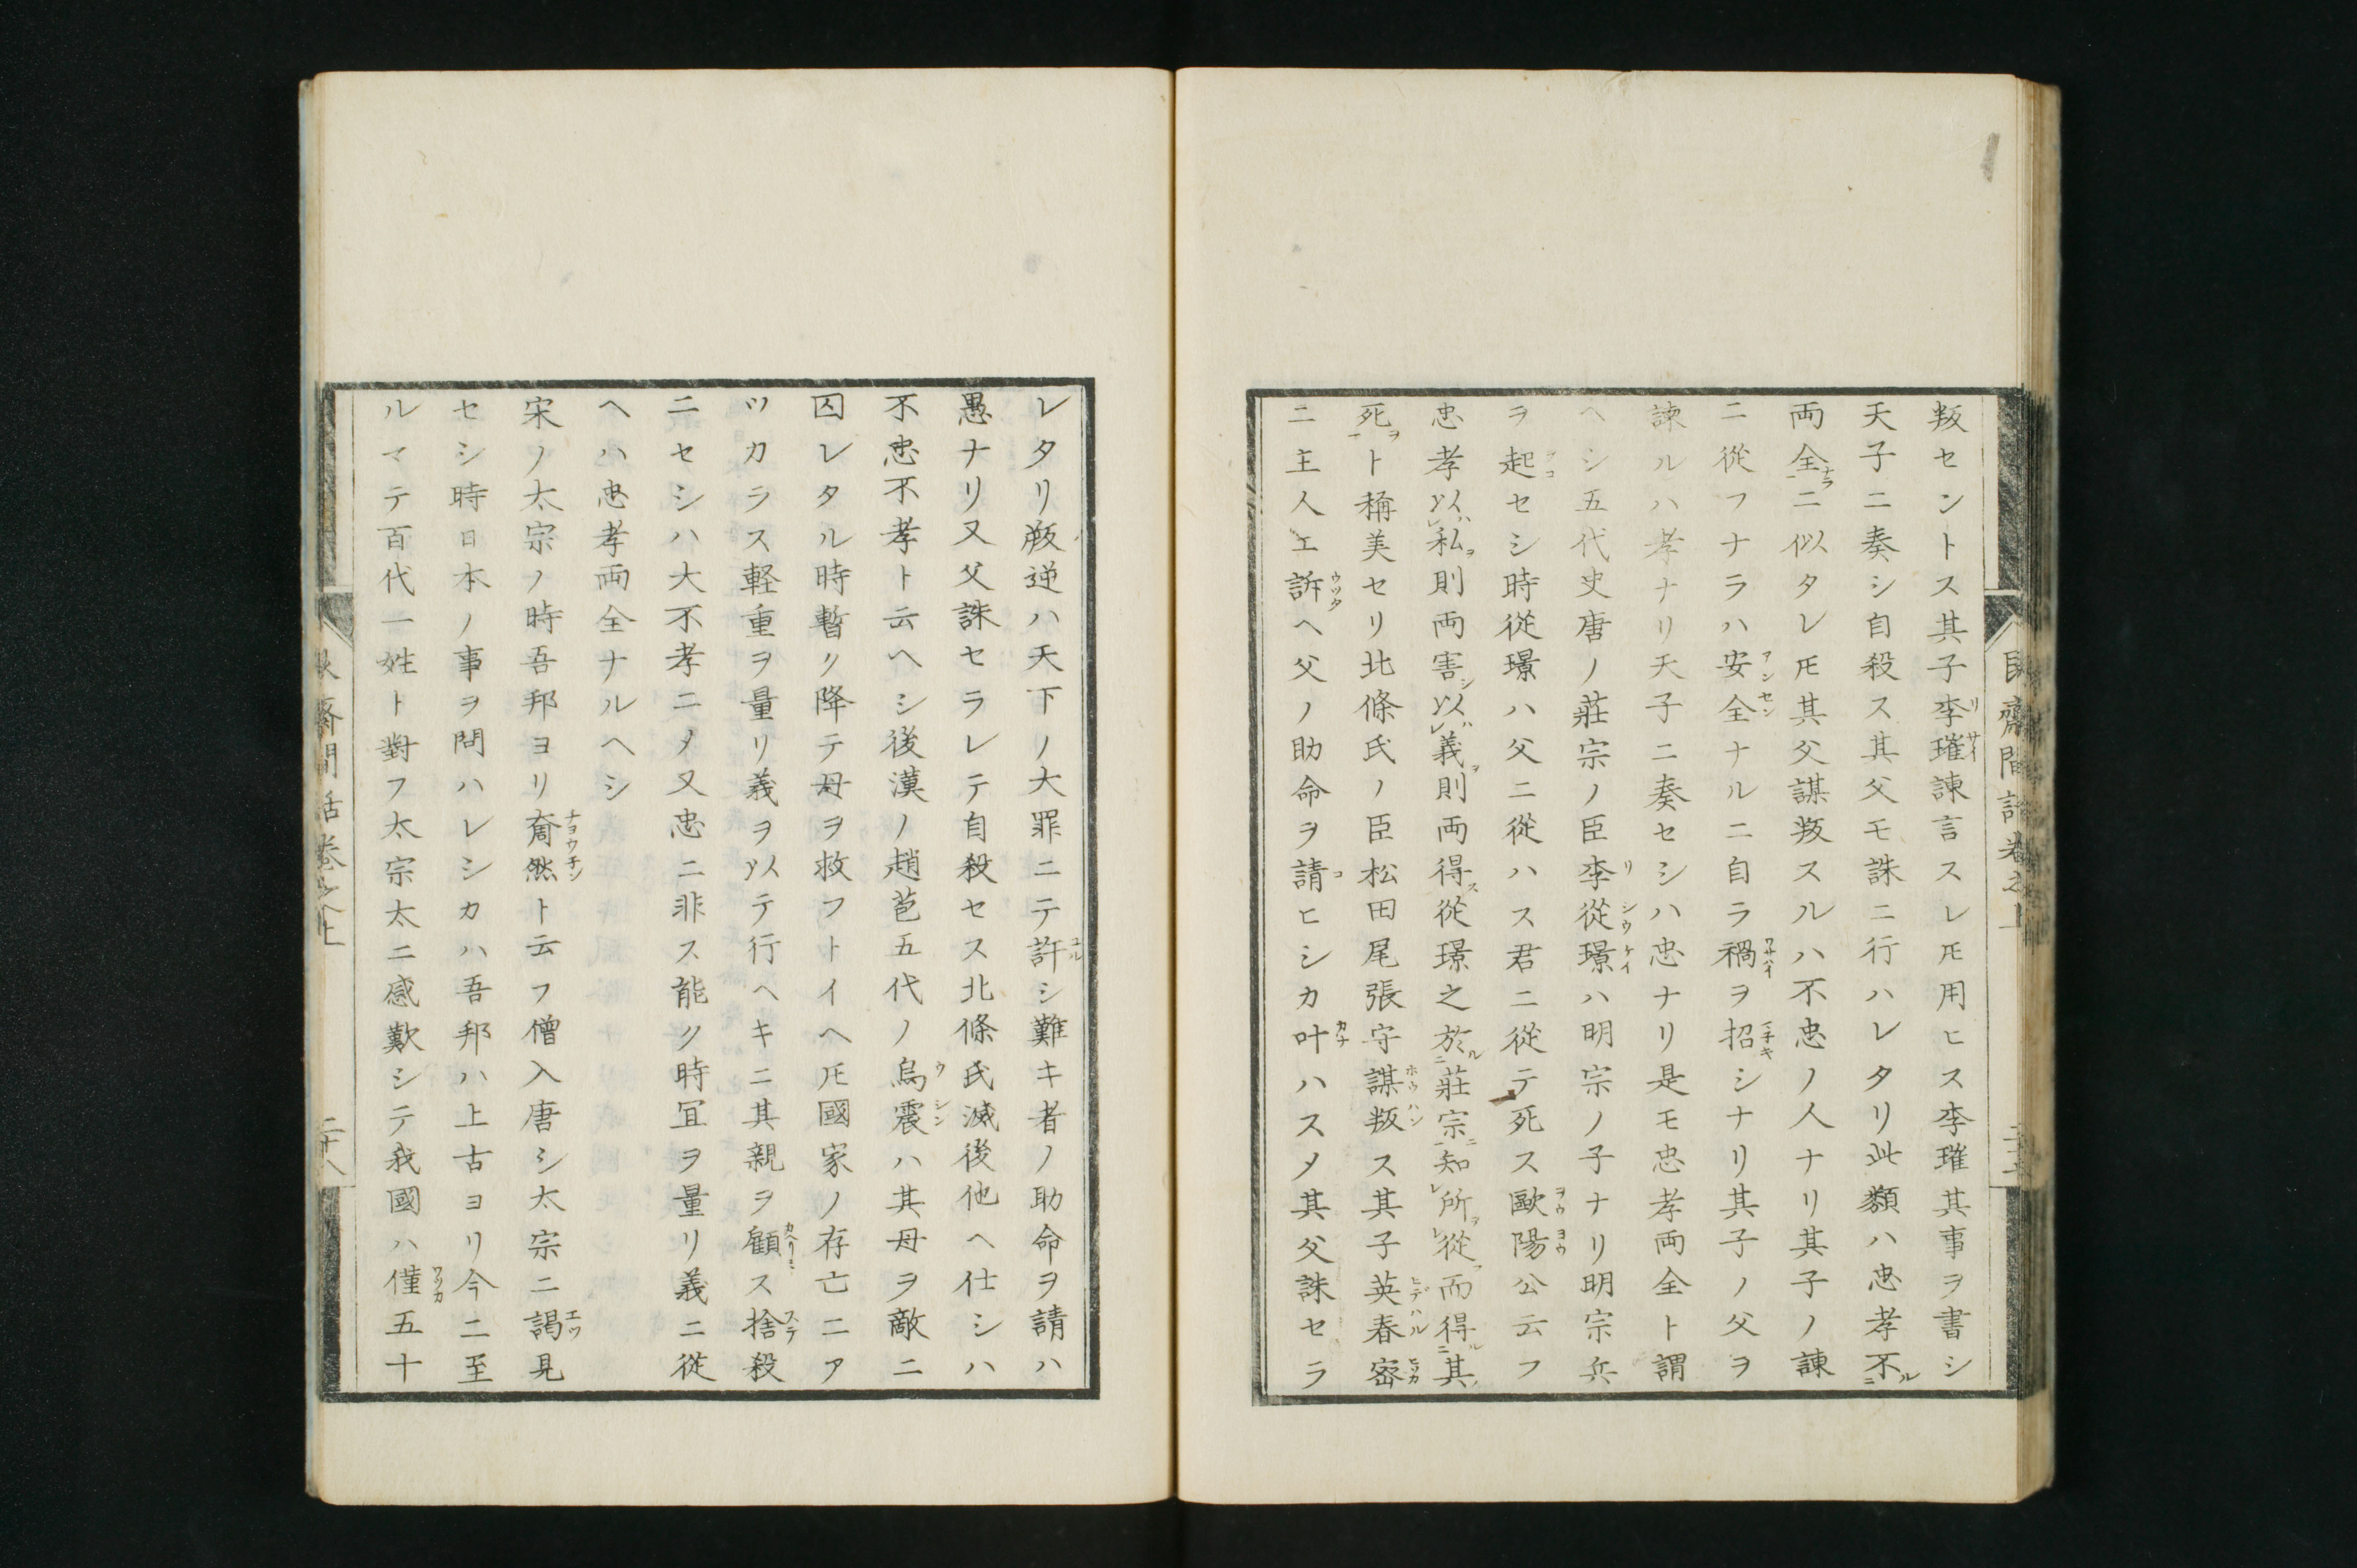 叛セントス其子李璀諌言スレ𪜈用ヒス李璀其事ヲ書シ
天子ニ奏シ自殺ス其父モ誅ニ行ハレタリ此類ハ忠孝不
両全ニ似タレ𪜈其父謀叛スルハ不忠ノ人ナリ其子ノ諌
ニ從フナラハ安全ナルニ自ラ禍ヲ招シナリ其子ノ父ヲ
諌ルハ孝ナリ天子ニ奏セシハ忠ナリ是モ忠孝両全ト謂
ヘシ五代史唐ノ莊宗ノ臣李從璟ハ明宗ノ子ナリ明宗兵
ヲ起セシ時從璟ハ父ニ從ハス君ニ從テ死ス歐陽公云フ
忠孝以私則両害以義則両得從璟之於莊宗知所從而得其
死ト稱美セリ北條氏ノ臣松田尾張守謀叛ス其子英春密
ニ主人エ訴ヘ父ノ助命ヲ請ヒシカ叶ハスメ其父誅セラ
レタリ叛逆ハ天下ノ大罪ニテ許シ難キ者ノ助命ヲ請ハ
愚ナリ又父誅セラレテ自殺セス北條氏滅後他ヘ仕シハ
不忠不孝ト云ヘシ後漢ノ趙苞五代ノ烏震ハ其母ヲ敵ニ
囚レタル時暫ク降テ母ヲ救フトイヘ𪜈國家ノ存亡ニア
ツカラス軽重ヲ量リ義ヲ以テ行ヘキニ其親ヲ顧ス捨殺
ニセシハ大不孝ニメ又忠ニ非ス能ク時冝ヲ量リ義ニ從
ヘハ忠孝両全ナルヘシ
宋ノ太宗ノ時吾邦ヨリ奝然ト云フ僧入唐シ太宗ニ謁見
セシ時日本ノ事ヲ問ハレシカハ吾邦ハ上古ヨリ今ニ至
ルマテ百代一姓ト對フ太宗太ニ感歎シテ我國ハ僅五十
齋間話卷之上
二十八